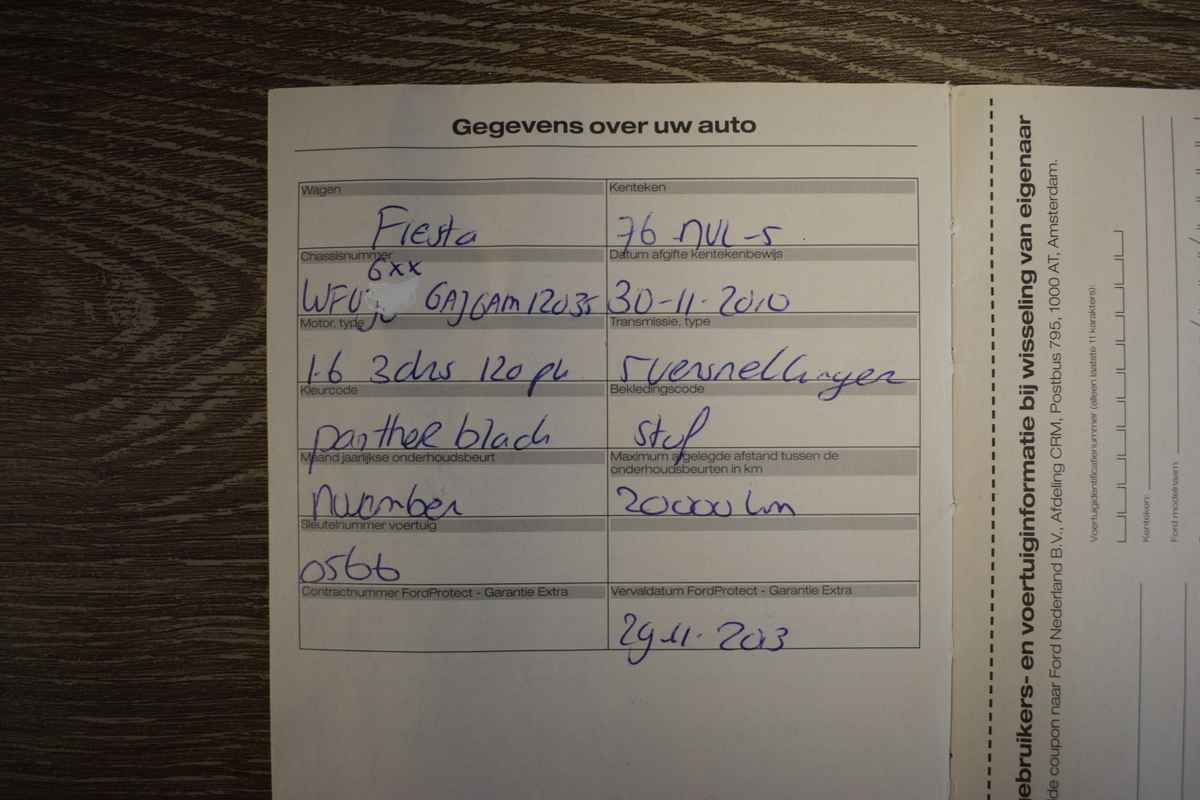 Gegevens over uw auto
Wagen
Fiesta
Kenteken
76 NVL-5
Chassisnummer
6xx
WF0 GAJGAM12035
Datum afgifte kentekenbewijs
30-11-2010
Motor, type
1.6 3drs 120 pk
Transmissie, type
5 versnellingen
Kleurcode
panther black
Bekledingscode
stof
Maand jaarlijkse onderhoudsbeurt
november
Maximum afgelegde afstand tussen de
onderhoudsbeurten in km
20000 km
Sleutelnummer voertuig
0566
Contractnummer FordProtect - Garantie Extra
Vervaldatum FordProtect - Garantie Extra
29-11-2013
ebruikers- en voertuiginformatie bij wisseling van eigenaar
de coupon naar Ford Nederland B.V., Afdeling CRM, Postbus 795, 1000 AT, Amsterdam.
Voertuigidentificatienummer (alleen laatste 11 karakters):
Kenteken:
Ford modelnaam: